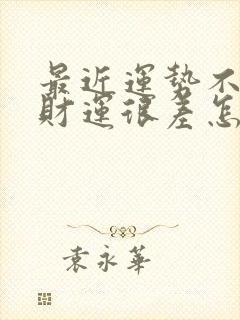 最近運勢不
財運很差怎
袁永華